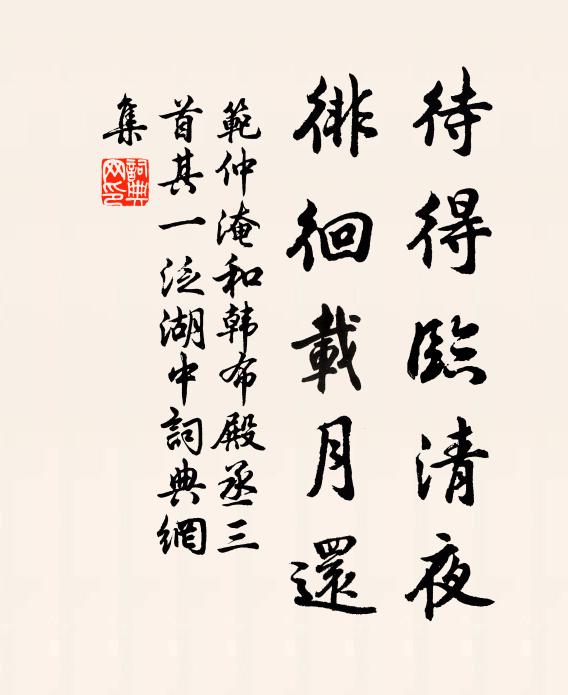 待得臨清夜
徘徊載月還
範仲淹和韩布殿丞三
首其一泛湖中詞典網
集
詞典網印